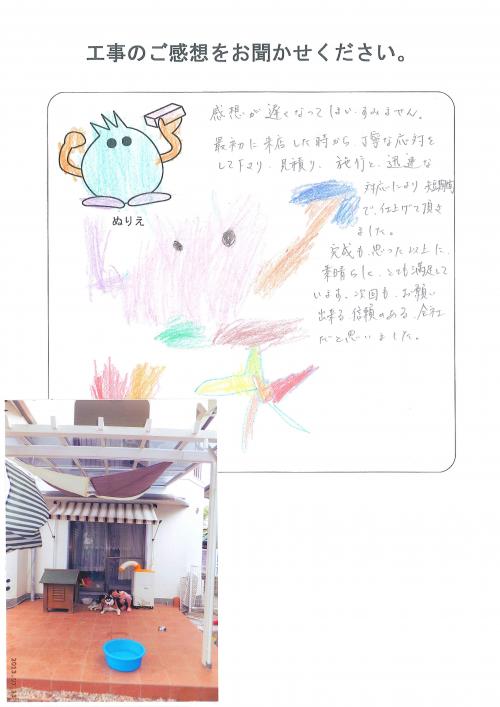 工事のご感想をお聞かせください。
感想が遅くなってはい すみません。
最初に来店した時から、丁寧な応対を
して下さり、見積り、施行と、迅速な
対応により 短期間
で、仕上げて頂き
ました。
完成も思った以上に、
素晴らしく、とても満足して
います。次回も、お願い
出来る信頼のある、会社
だと思いました。
ぬりえ